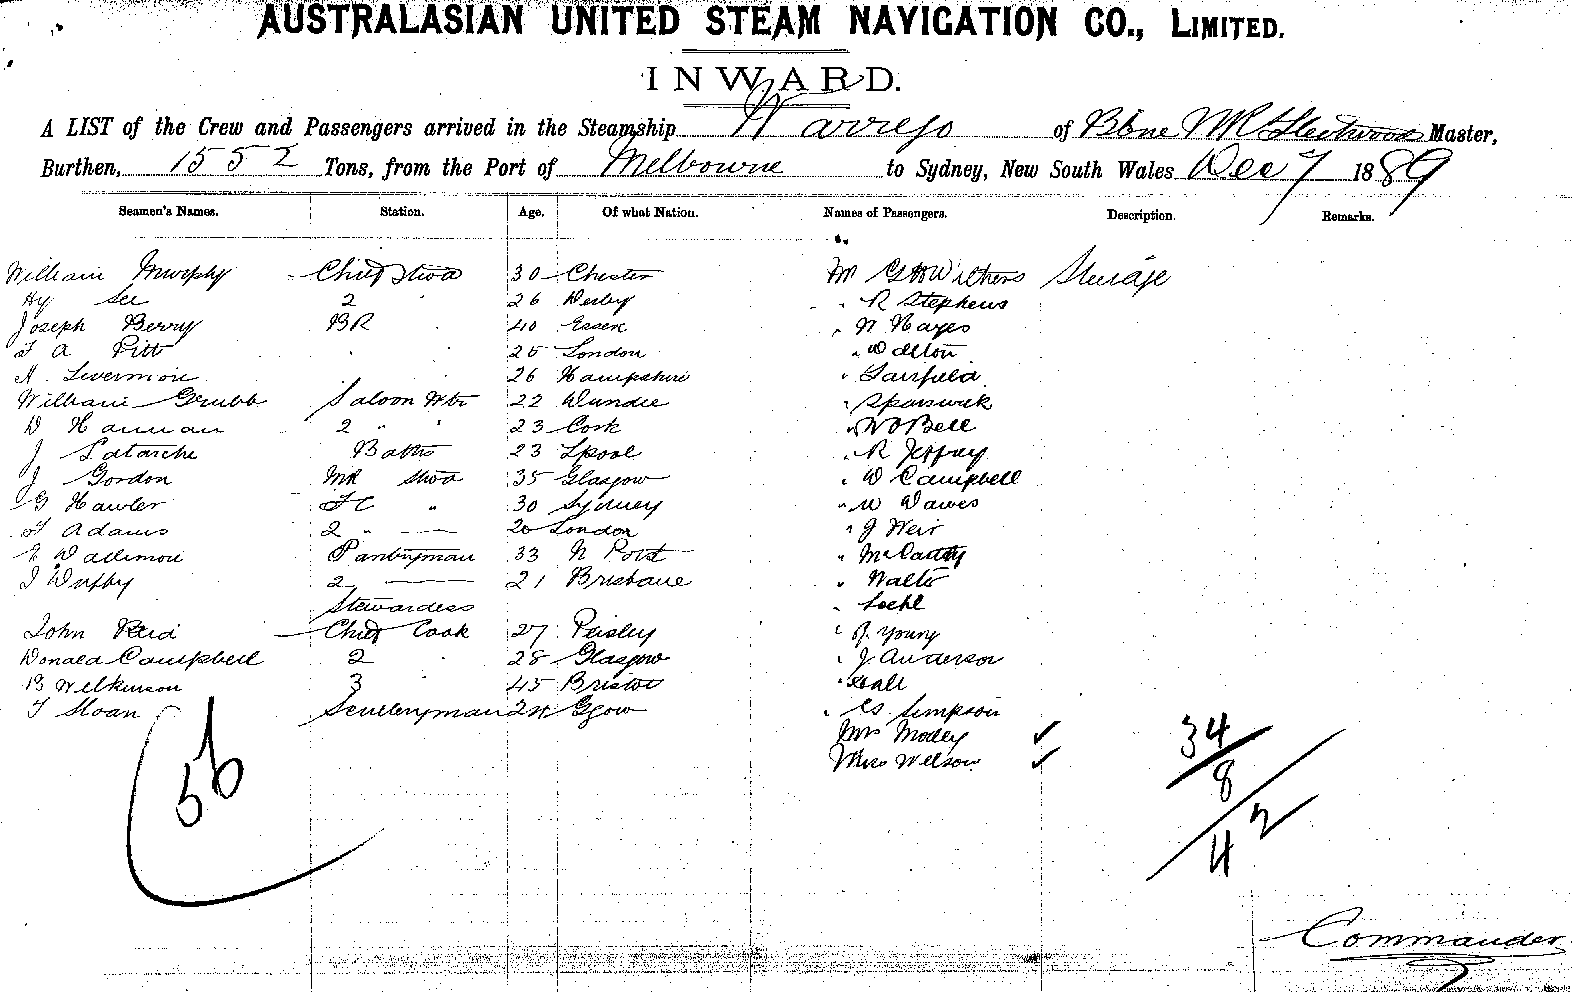 AUSTRALASIAN UNITED STEAM NAVIGATION CO., LIMITED.
INWARD.
A LIST of the Crew and Passengers arrived in the Steamship Warrego of Bbne Master,
Burthen, 1552 Tons, from the Port of Melbourne to Sydney, New South Wales Dec 7 1889
Seamen's Names. Station. Age. Of what Nation. Names of Passengers. Description. Remarks.
William Murphy Chief Stwd 30 Chester Mr G H Withers Steerage
Hy Lee 2 " 26 Derby " R Stephens
Joseph Berry BR " 40 Essex " N Hayes
F A Pitt " " 25 London " Walton
A. Livermore 26 Hampshire " Fairfield
William Grubb Saloon Wtr 22 Dundee "
D Hannan 2 " " 23 Cork " W O Bell
J Latarche Baths 23 Lpool " R Jeffray
J Gordon MR Stwd 35 Glasgow " D Campbell
G Hawler FC " 30 Sydney " W Dawes
F Adams 2 " 20 London " J Weir
Pantryman 33 N Port " McCarthy
2 21 Brisbane " Walter
Stewardess "
John Reid Chief Cook 27 Paisley " R Young
Donald Campbell 2 " 28 Glasgow " J Anderson
B Wilkinson 3 45 Bristol " Hall
T Sloan Sculleryman 24 Ggow " Simpson
Mrs Morley ✓
Miss Wilson ✓
34
8
42
56
Commander